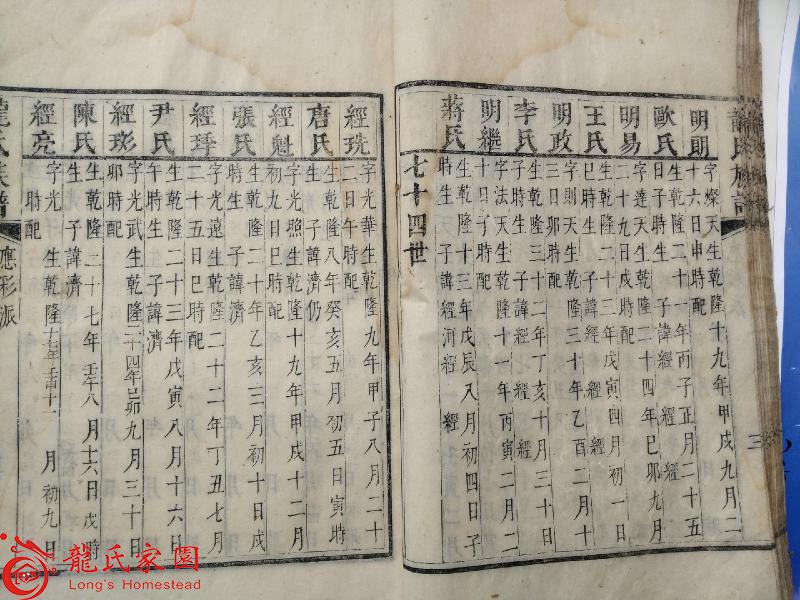 氏族譜
明朗
字燦天生乾隆十九年甲戌九月二
十六日申時配
歐氏
生乾隆二十一年丙子正月二十五
日子時生 子諱經 經
明易
字達天生乾隆二十四年己卯九月
二十九日戌時配
王氏
生乾隆二十三年戊寅四月初一日
巳時生 子諱經 經
明政
字則天生乾隆三十年乙酉二月十
三日卯時配
李氏
生乾隆三十二年丁亥十月三十日
時生 子諱經 經
明繼
字法天生乾隆十一年丙寅二月二
十四日子時配
蔣氏
生乾隆十三年戊辰八月初四日子
時生 子諱經河經 經
七十四世
三
經珗
字光華生乾隆九年甲子八月二十
二日午時配
唐氏
生乾隆八年癸亥五月初五日寅時
生 子諱濟仍
經魁
字光照生乾隆十九年甲戌十二月
初七日巳時配
張氏
生乾隆二十年乙亥三月初十日戌
時生 子諱濟
經琤
字光遠生乾隆二十二年丁丑七月
二十五日巳時配
尹氏
生乾隆二十三年戊寅八月十六日
午時生 子諱濟
經珓
字光武生乾隆二十四年己卯九月三十日
卯時配
陳氏
生乾隆二十七年壬午八月十六日戌時
生 子諱濟
經亮
字光 生乾隆十七年壬申十一月初九日
時配
龍氏族譜
應彩派
龍氏家園
Long's Homestead